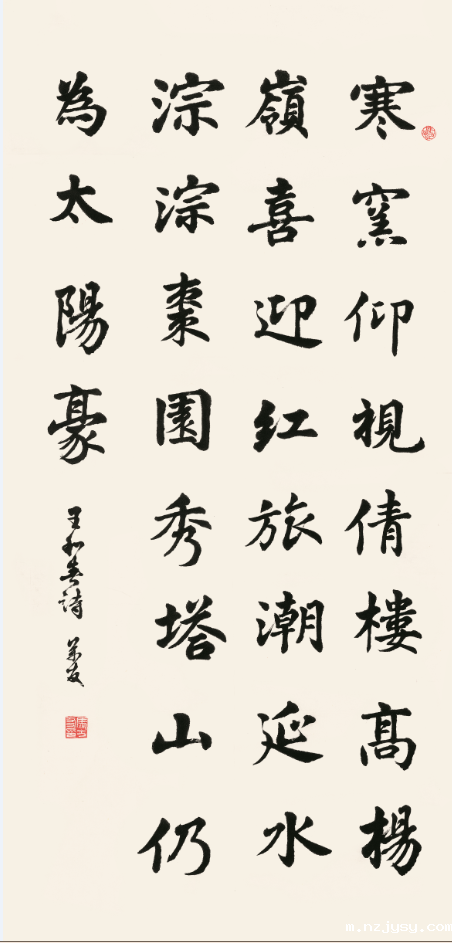 寒窯仰視倩樓高楊
嶺喜迎红旅潮延水
淙淙棗園秀塔山仍
為太陽豪
王和
詩
m.nzjysy.com